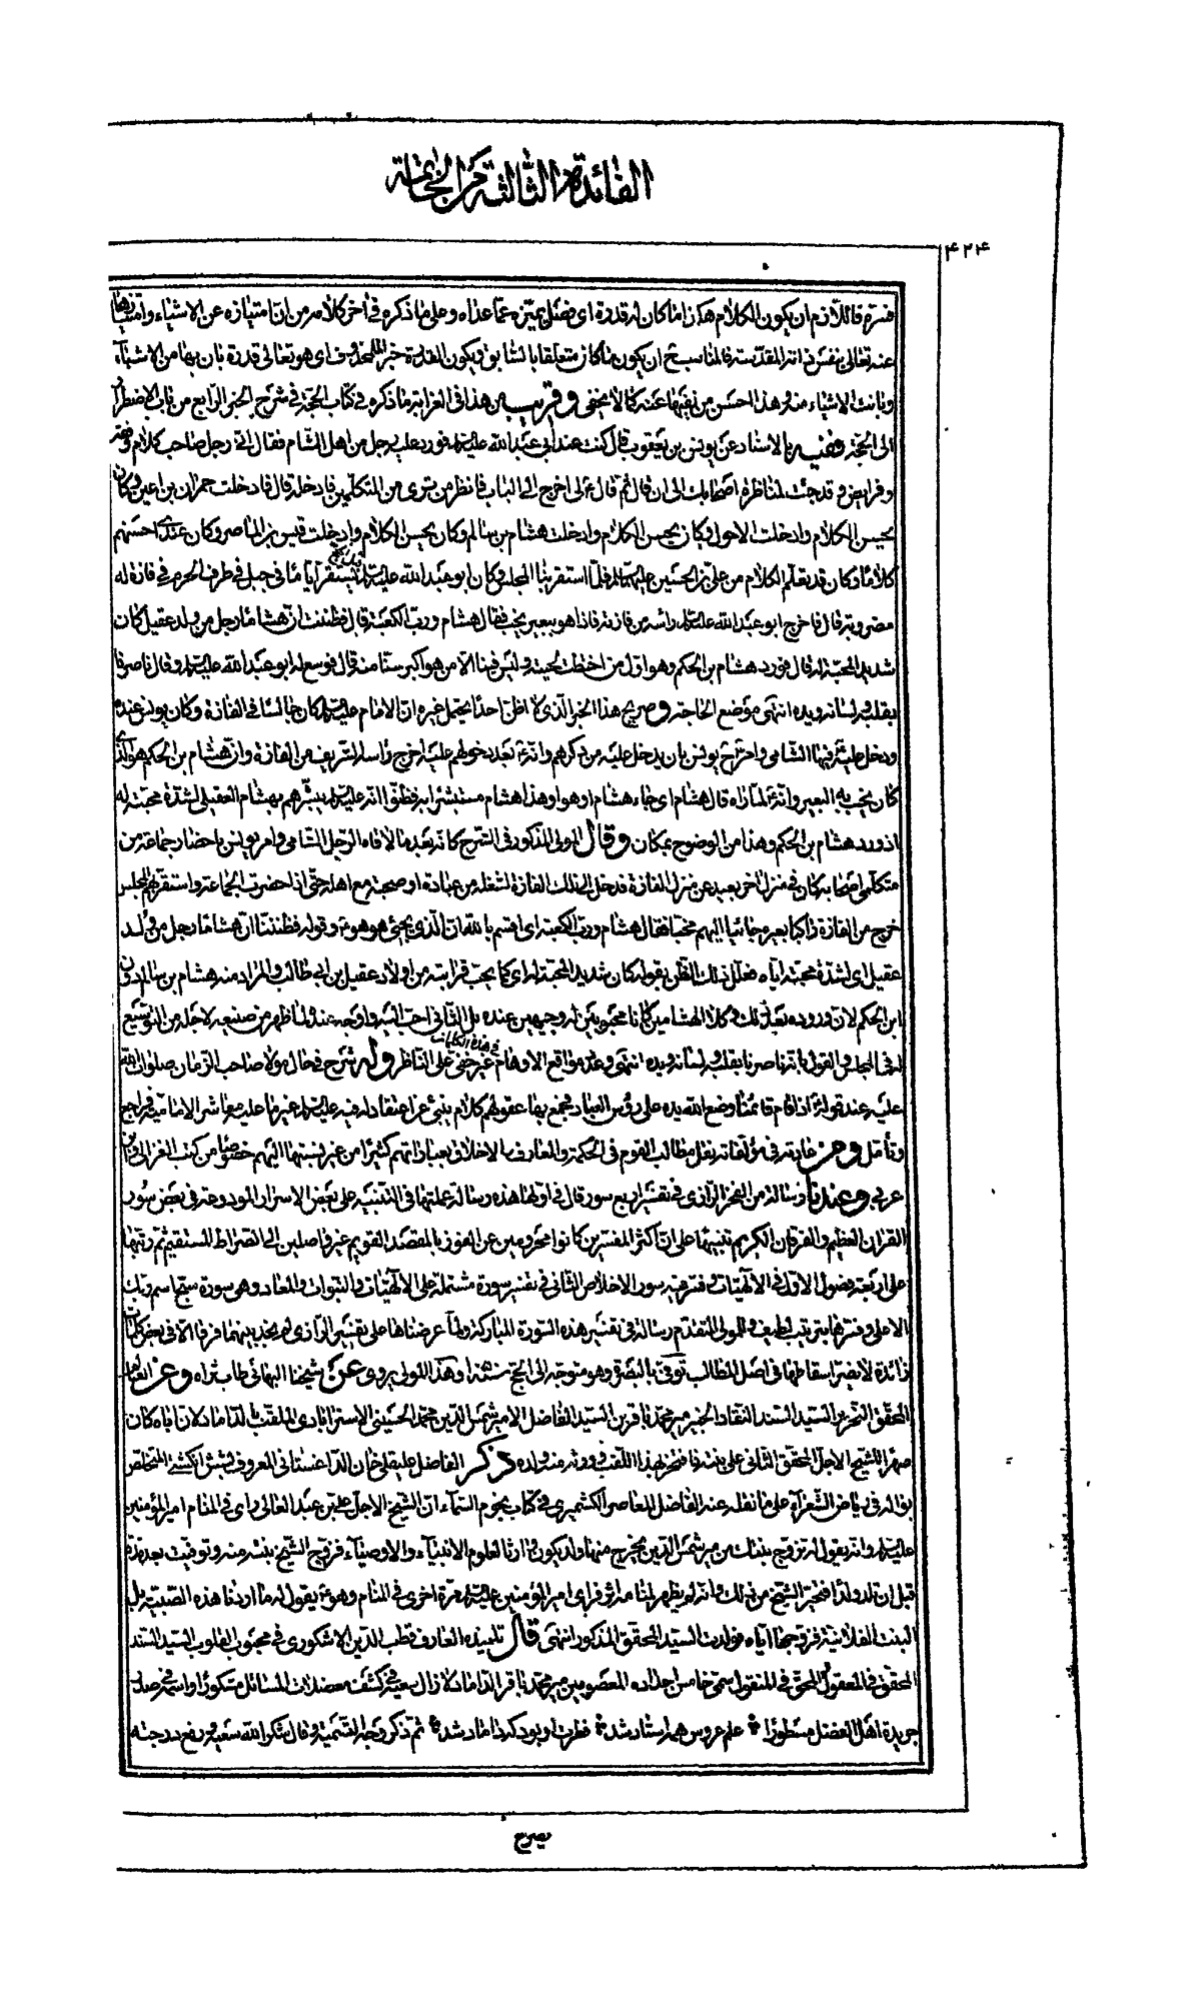 الفائدة الثالثة من الخاتمة
۴۲۴
فسّره فاللازم ان يكون الكلام هكذا ما كان له قدرة اى فضل يميّزه عمّا عداه وعلى ما ذكره فى آخر كلامه من ان امتيازه عن الاشياء وامتيازها
عنه تعالى بنفس ذاته المقدّسة فالمناسب ح ان يكون ما كان متعلّقا بالسّابق ويكون القدرة خبر المحذوف اى هو تعالى قدرة بان بها من الاشياء
وبانت الاشياء منه وهذا احسن من نفيها عنه كما لا يخفى وقريب من هذا فى الغرابة ما ذكره فى كتاب الحجّة فى شرح الخبر الرّابع من باب الاضطرار
الى الحجّة ففيه بالاسناد عن يونس بن يعقوب قال كنت عند ابى عبد الله عليه السلام فورد عليه رجل من اهل الشام فقال انّى رجل صاحب كلام وفقه
وفرايض وقد جئت لمناظرة اصحابك الى ان قال ثم قال ع لى اخرج الى الباب فانظر من ترى من المتكلّمين فادخله قال فادخلت حمران بن اعين وكان
يحسن الكلام وادخلت الاحول وكان يحسن الكلام وادخلت هشام بن سالم وكان يحسن الكلام وادخلت قيس بن الماصر وكان عندى احسنهم
كلاما وكان قد تعلّم الكلام من على بن الحسين عليهما السلام فلمّا استقر بنا المجلس وكان ابو عبد الله عليه السلام قبل الحجّ يستقر ايّاما فى جبل فى طرف الحرم فى فازة له
مضروبة قال فاخرج ابو عبد الله عليه السلام راسه من فازته فاذا هو ببعير يخب فقال هشام وربّ الكعبة قال فظننت ان هشاما رجل من ولد عقيل كان
شديد المحبّة له قال فورد هشام بن الحكم وهو اوّل من اختطت لحيته وليس فينا الّا من هو اكبر سنّا منه قال فوسع له ابو عبد الله عليه السلام وقال ناصرنا
بقلبه ولسانه ويده انتهى موضع الحاجة وصريح هذا الخبر الّذى لا اظنّ احدا يحتمل غيره ان الامام عليه السلام كان جالسا فى الفازة وكان يونس عنده
ودخل عليه فيها الشّامى وامر ع يونس بان يدخل عليه من ذكرهم وانّه ع بعد دخولهم عليه اخرج راسه الشريف من الفازة وان هشام بن الحكم هو الّذى
كان يخب به البعير وانّه ع لما رآه قال هشام اى جاء هشام او هو او هذا هشام مستبشرا به فظنّوا انّه عليه السلام يبشّرهم بهشام العقيلى لشدّة محبّته له
اذ ورد هشام بن الحكم وهذا من الوضوح بمكان وقال المولى المذكور فى الشرح كانّه بعد ما لاقاه الرّجل الشّامى وامر يونس باحضار جماعة من
متكلّمى اصحابه كان فى منزل آخر بعيد عن منزل الفازة فدخل الى تلك الفازة لشغله من عبادة او صحبة مع اهله حتّى اذا حضرت الجماعة واستقر بهم المجلس
خرج من الفازة راكبا بعيره جائيا اليهم مخبّا فقال هشام وربّ الكعبة اى اقسم بالله ان الّذى يجئ هو هو ع وقوله فظننّا ان هشاما رجل من ولد
عقيل اى لشدّة محبّته ايّاه فعلّل ذلك الظنّ بقوله كان شديد المحبّة له اى كما يحبّ قرابته من اولاد عقيل بن ابى طالب والمراد منه هشام بن سالم دون
ابن الحكم لان وروده بعد ذلك وكلا الهشامين كانا محبوبين له وجيهين عنده بل الثّانى احبّ اليه واوجه عنده لما ظهر من صنيعه لاجله من التوسيع
له فى المجلس والقول بانّه ناصرنا بقلبه ولسانه ويده انتهى وعدّ مواقع الاوهام فى هذه الكلمات غير خفى على الناظر وله شرح فى حال مولانا صاحب الزّمان صلوات الله
عليه عند قوله ع اذا قام قائمنا وضع الله يده على رؤس العباد فجمع بها عقولهم كلام ينبئ عن اعتقاد له فيه عليه السلام غير ما عليه معاشر الاماميّة فراجع
وتامّل ومن عادته فى مؤلّفاته نقل مطالب القوم فى الحكمة والمعارف والاخلاق بعباراتهم كثيرا من غير نسبتها اليهم خصوصا من كتب الغزالى وابن
عربى وعندنا رسالة من الفخر الرّازى فى تفسير اربع سور قال فى اوّلها هذه رسالة عملتها فى التنبيه على بعض الاسرار المودوعة فى بعض سور
القرآن العظيم والفرقان الكريم تنبيها على ان اكثر المفسّرين كانوا محرومين عن الفوز بالمقصد القويم غير واصلين الى الصّراط المستقيم ثم رتّبها
على اربعة فصول الاوّل فى الالهيّات وفسّر فيه سورة الاخلاص الثّانى فى تفسير سورة مشتملة على الالهيّات والنبوات والمعاد وهى سورة سبّح اسم ربّك
الاعلى وفسّرها بترتيب لطيف وللمولى المتقدّم رسالة فى تفسير هذه السّورة المباركة ولمّا عرضناها على تفسير الرّازى لم نجد بينهما فرقا الّا فى بعض كلمات
زائدة لا يضرّ اسقاطها فى اصل المطالب توفى ره بالبصرة وهو متوجّه الى الحجّ سنة وهذا المولى يروى عن شيخنا البهائى طاب ثراه وعن العالم
المحقّق النحرير السيّد السّند النقاد الخبير مير محمّد باقر بن السيّد الفاضل الامير شمس الدّين محمّد الحسينى الاسترابادى الملقّب بالداماد لان اباه كان
صهرا للشيخ الاجل المحقّق الثّانى على بنته فافتخر بهذا اللّقب وورثه منه ولده ذكر الفاضل عليقلى خان الدّاغستانى المعروف المتخلّص
بواله فى رياض الشعراء على ما نقله عنه الفاضل المعاصر الكشميرى فى كتاب نجوم السّماء ان الشيخ الاجل على بن عبد العالى راى فى المنام امير المؤمنين
عليه السلام وانّه يقول له تزوّج بنتك من مير شمس الدّين يخرج منها ولد يكون وارثا لعلوم الانبياء والاوصياء فزوّج الشّيخ بنته منه وتوفيت بعد مدّة
قبل ان تلد ولدا فتحيّر الشيخ من ذلك وانّه لم يظهر لمنامه اثر فراى امير المؤمنين عليه السلام مرّة اخرى فى المنام وهو ع يقول له ما اردنا هذه الصّبية بل
البنت الفلانيّة فزوّجها ايّاه فولدت السيّد المحقّق المذكور انتهى قال تلميذه العارف قطب الدّين الاشكورى فى محبوب القلوب السيّد السّند
المحقّق فى المعقول والمحق فى المنقول سمّى خامس اجداده المعصومين مير محمّد باقر الدّاماد لا زال سعيه فى كشف معضلات المسائل مشكورا واسمه فى صدر
جريدة اهل الفضل مسطورا * علم عروس همه استاد شد * فطرت او بود كه داماد شد * ثم ذكر وجه التّسمية وقال شكر الله سعيه ورفع درجته
يصرح